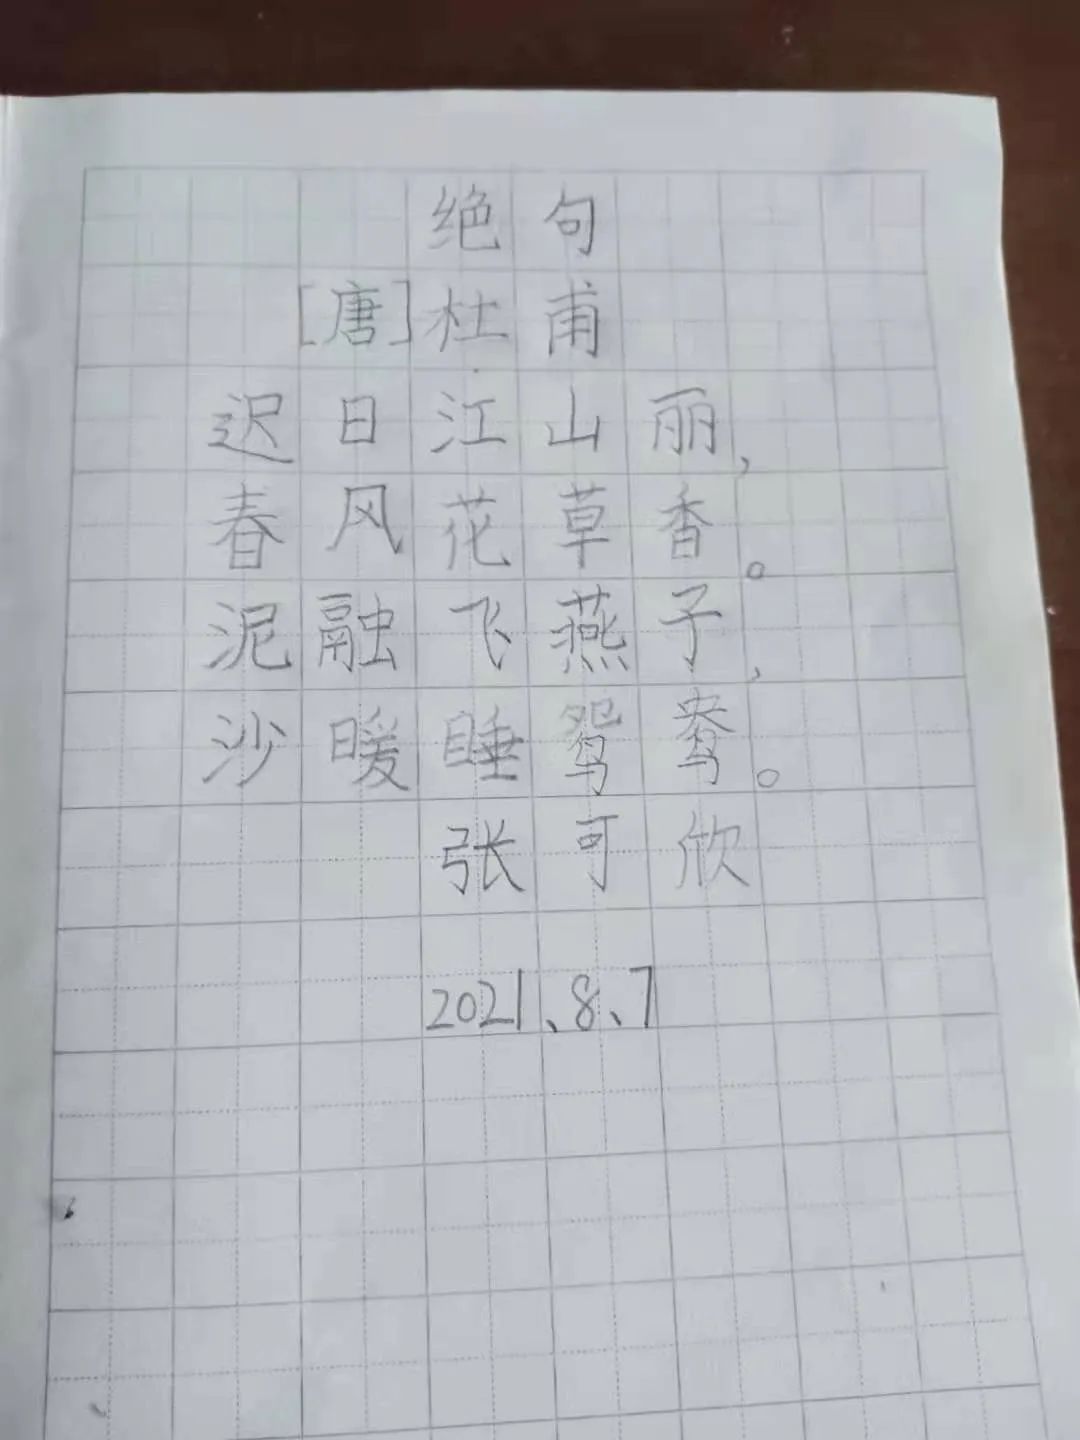 绝句
[唐]杜甫
迟日江山丽,
春风花草香。
泥融飞燕子,
沙暖睡鸳鸯。
张可欣
2021、8、7